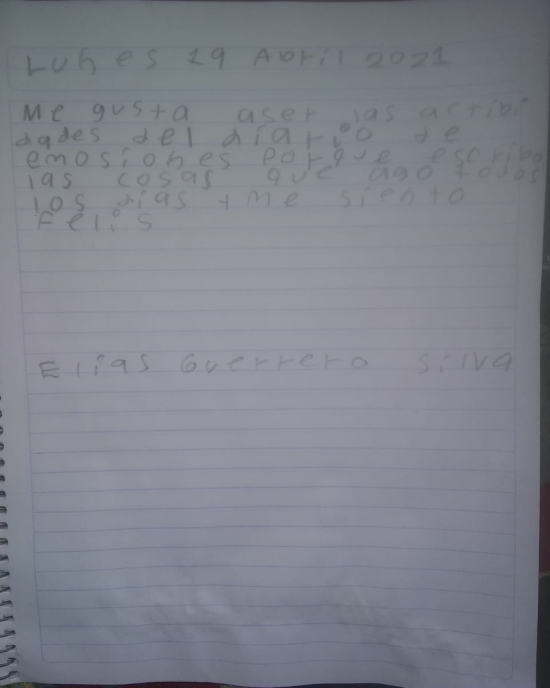 Lunes 19 Abril 2021
Me gusta aser las actibi
dades del diario de
emosiones porque escribo
las cosas que ago todos
los dias + me siento
Felis
Elias Guerrero Silva